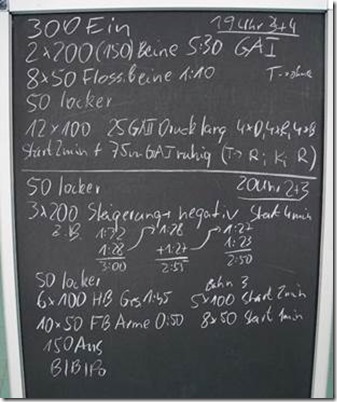 300 Ein 19 Uhr 3+4
2x200 (150) Beine 5:30 GAI
8x50 Floss. Beine 1:10
50 locker
12x100 25 GAII Druck lang
Start 2min + 75m GAI ruhig (T→ R; K; R)
50 locker 20 Uhr 2+3
3x200 Steigerung + negativ Start 4min
z.B. 1:32 1:28 1:27
1:28 +1:27 1:23
3:00 2:55 2:50
50 locker
6x100 HB Ges 1:45 Bahn 3 5x100 Start 2min
10x50 FB Arme 0:50 8x50 Start 1min
150 Aus
B|B|Po